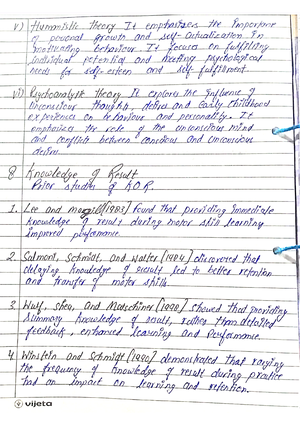 v) Humanistic theory It emphasizes the importance
of personal growth and self-actualization in
motivating behaviour. It focuses on fulfilling
individual potential and meeting psychological
needs for self-esteem and self-fulfilment.
vi) Psychoanalytic theory It explores the influence of
unconscious thoughts, desires and early childhood
experiences on behaviour and personality. It
emphasizes the role of the unconscious mind
and conflicts between conscious and unconscious
desires.
8 Knowledge of Result
Prior studies of K.O.R.
1. Lee and [1983] found that providing immediate
knowledge of results during motor skill learning
improved performance.
2. Salmoni, Schmidt, and Walter [1984] discovered that
delaying knowledge of result led to better retention
and transfer of motor skills.
3. Wulf, Shea, and Matschiner [1998] showed that providing
summary knowledge of result, rather than detailed
feedback, enhanced learning and performance.
4. Winstein and Schmidt [1990] demonstrated that varying
the frequency of knowledge of result during practice
had an impact on learning and retention.
vijeta